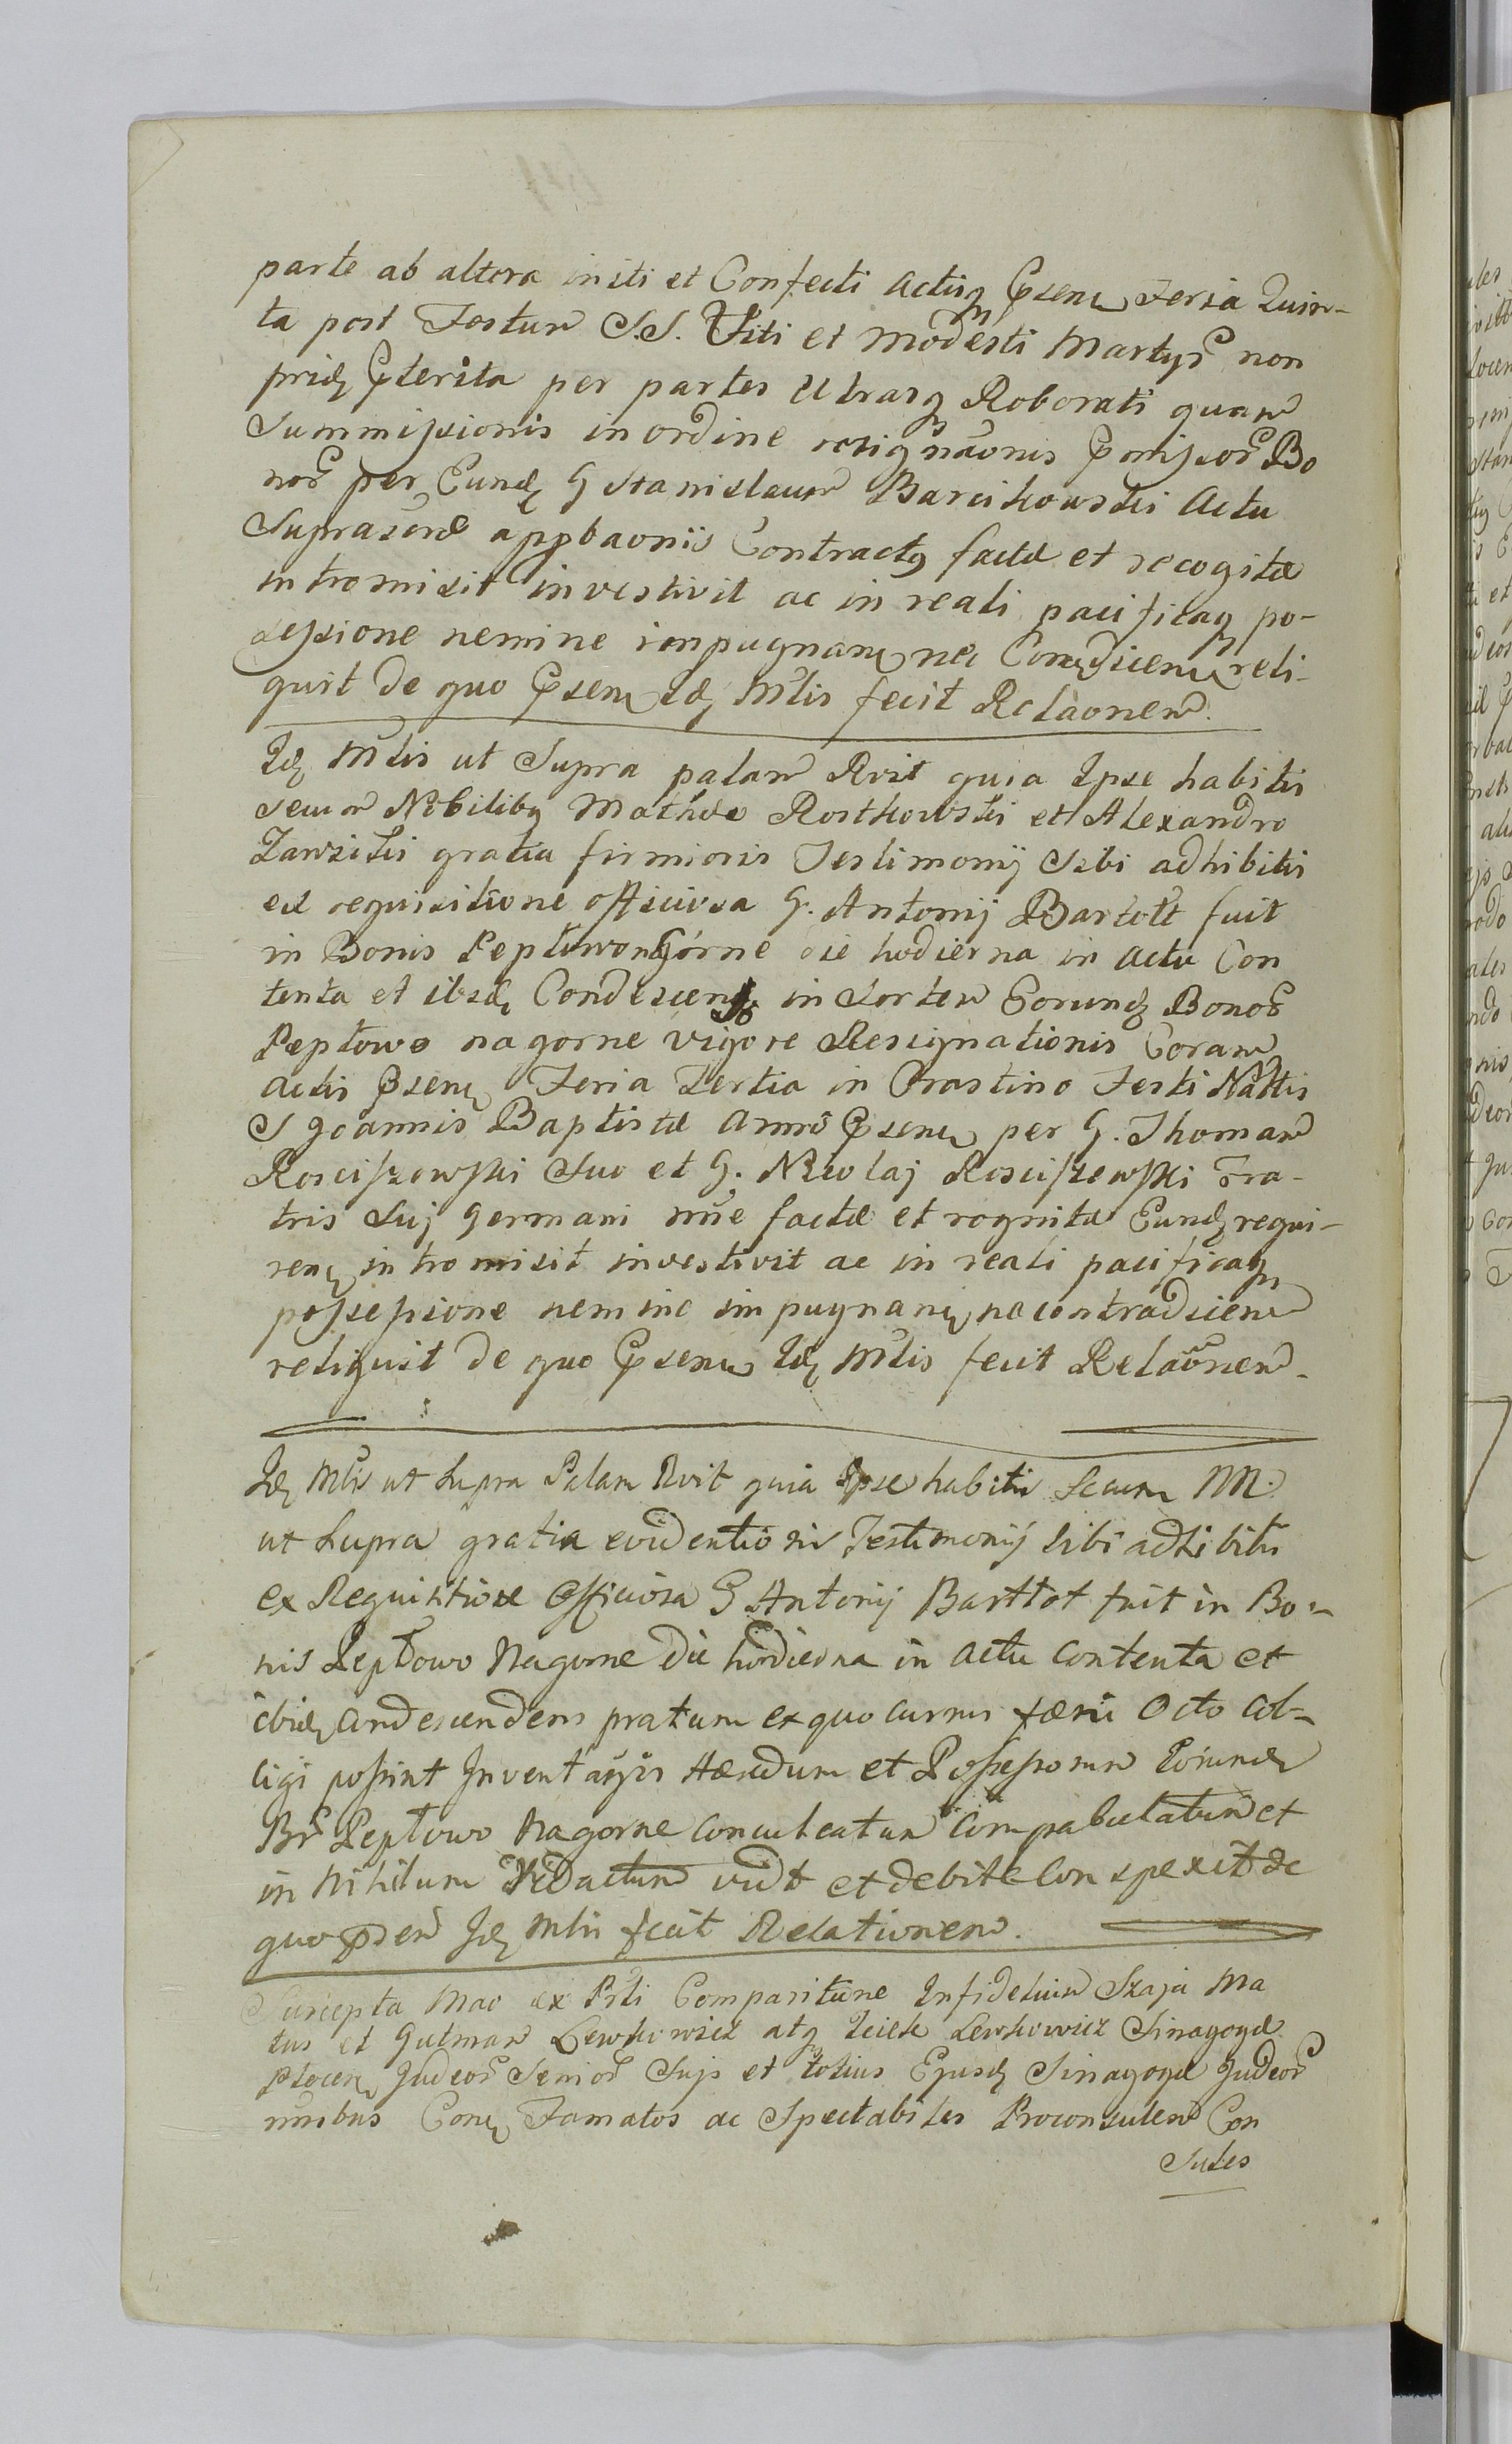 parte ab altera initi et Confecti Actisq Psen Feria Quin-
ta post Festum S.S. Viti et Modesti Martyr non
prid Pterita per partes Utrasq Roborati quam
Summissionis in ordine resignaonis Pomissor Bo
nor per Eund G Stanislaum Barcikowski Actu
Suprascrae appbaonis Contractq factae et recogitae
intromisit investivit ac in reali pacificaq po-
ssessione nemine impugnan nec Condicen reli-
quit de quo Psen Id Mlis fecit Relaonem.
Id Mlis ut Supra palam Rvit quia Ipse habitis
secum Nobilibq Mathia Rostkowski et Alexandro
Zawzitki gratia firmioris Testimonij Sibi adhibitis
ex requisitione officiosa G. Antonij Bartolt fuit
in Bonis Leptowo Górne die hodierna in Actu Con
tenta et ibid Condescens in Sortem Eorund Bonor
Leptowo nagorne vigore Resignationis Coram
Actis Psen Feria Tertia in Crastino Festi Natlis
S Joannis Baptistae Anni Psen per G. Thomam
Rosciszowski Suo et G. Nicolaj Rosciszewski Fra-
tris Suj Germani nne factae et rognitae Eund requi-
ren intromisit investivit ac in reali pacificaq
possessione nemine impugnan nec contradicen
reliquit de quo Psen Id Mlis fecit Relaonem.
Id Mlis ut Supra Palam Rvit quia Ipse habitis Secum NN.
ut Supra gratia evidentioris Testimonij sibi adhibitis
ex Requisitione Officiosa G Antonij Barttot fuit in Bo-
nis Leptowo Nagorne die hodierna in Actu Contenta et
ibid Condescendens pratum ex quo currus faeni Octo Col-
ligi possint Inventarijs Haeredum et Possessorum Eorund
Br Leptowo Nagorne Conculcatum Compabulatum et
in Nihilum Redactum vidit et debite Conspexit de
quo psen Id Mlis fecit Relationem.
Suscepta Mao ex Prli Comparitione Infidelium Szaja Ma
tus et Gutman Lewkowicz atq Icick Lewkowicz Sinagogae
Plocen Judeor Senior Suis et totius Ejusd Sinagogae Judeor
nnibus Con Famatos ac Spectabiles Proconsulem Con
Sules